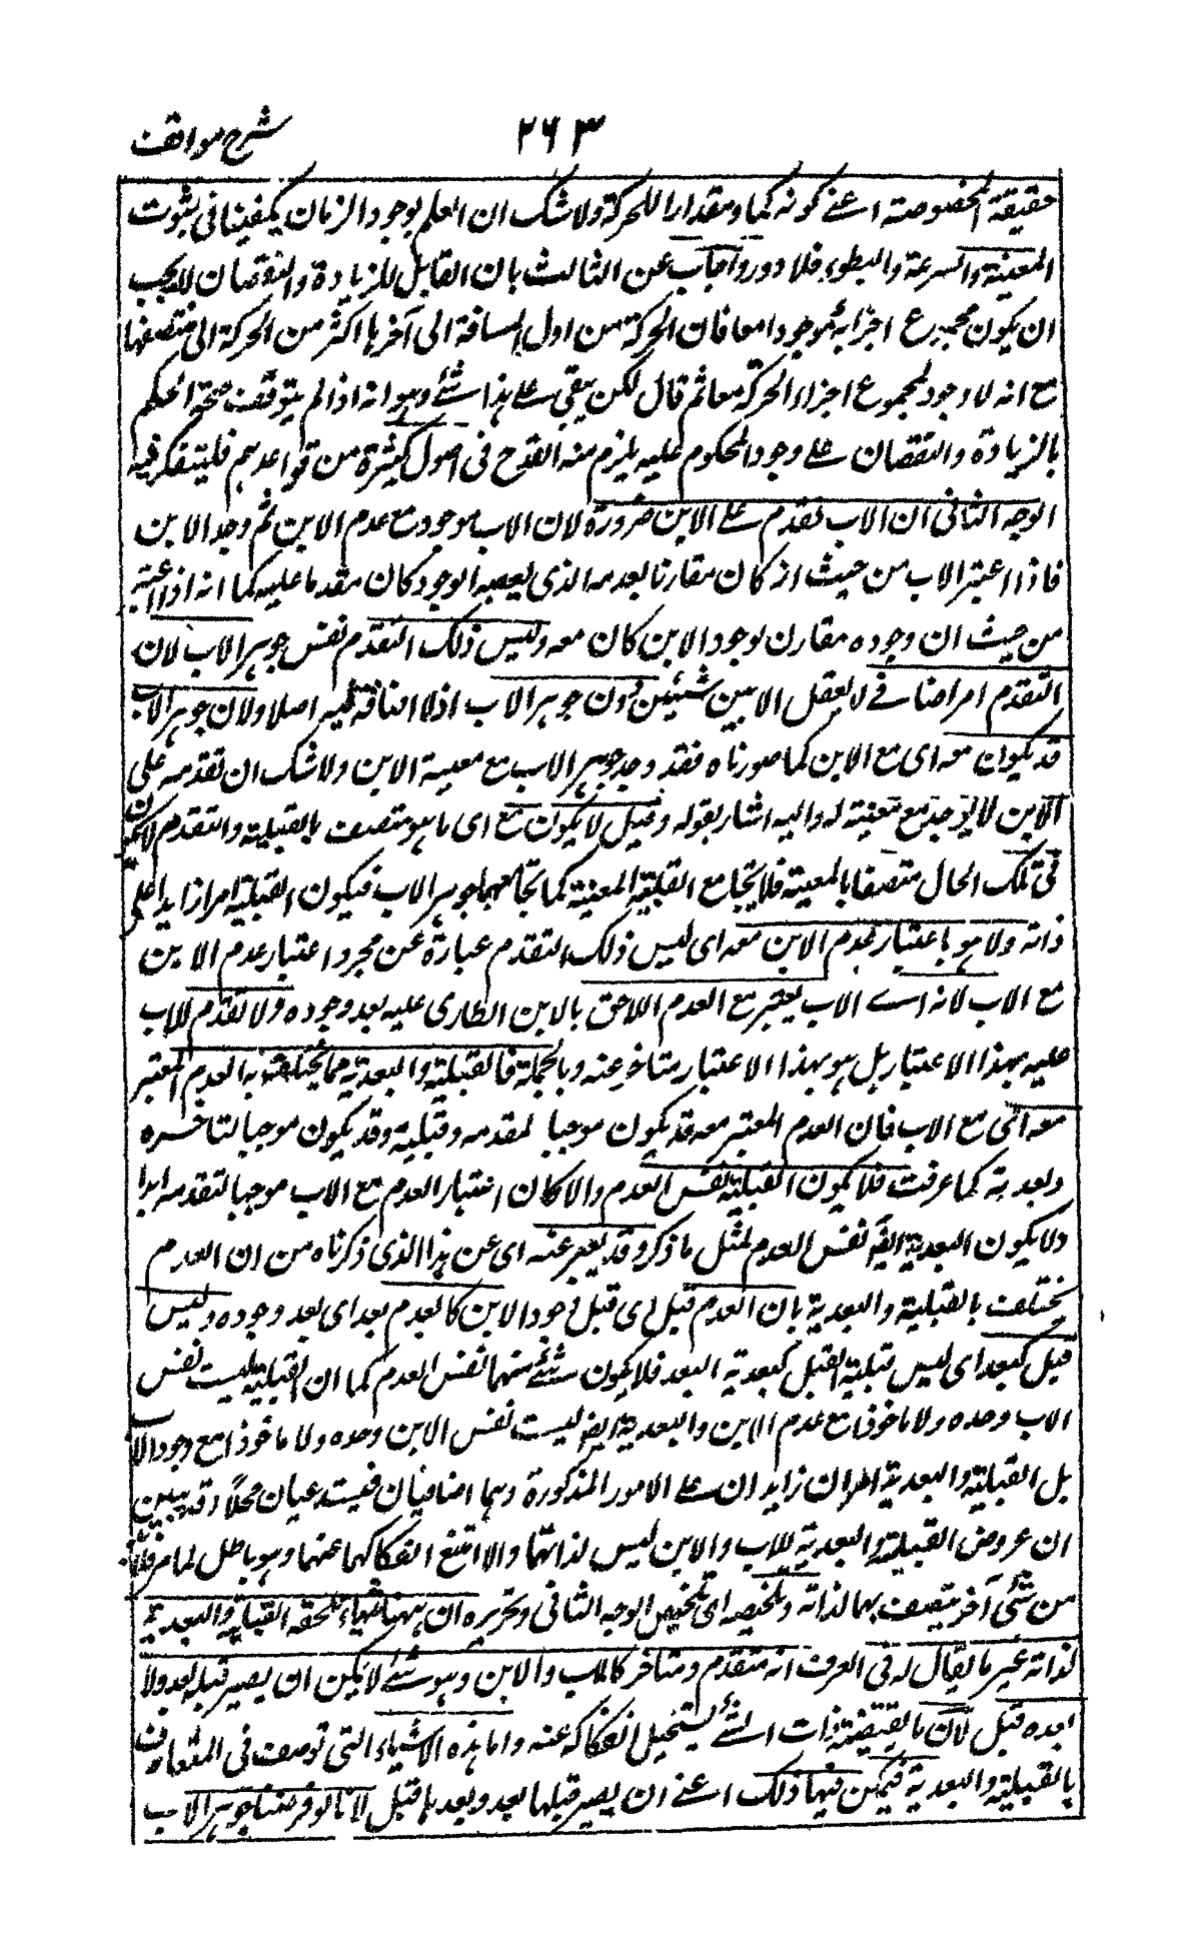 شرح مواقف
٢٦٣
حقيقته المخصوصة اعنى كونه كما ومقدارا للحركة ولا شك ان العلم بوجود الزمان يكفينا فى ثبوت
المعية والسرعة والبطوء فلا دور واجاب عن الثالث بان القابل للزيادة والنقصان لا يجب
ان يكون مجموع اجزائه موجودا معا فان الحركة من اول المسافة الى آخرها اكثر من الحركة الى منتصفها
مع انه لا وجود لمجموع اجزاء الحركة معا ثم قال لكن يبقى على هذا شئ وهو انه اذا لم يتوقف صحة الحكم
بالزيادة والنقصان على وجود المحكوم عليه يلزم منه القدح فى اصول كثيرة من قواعدهم فليتفكر فيه
الوجه الثانى ان الاب تقدم على الابن ضرورة لان الاب موجود مع عدم الابن ثم وجد الابن
فاذا اعتبر الاب من حيث انه كان مقارنا بعدمه الذى يعقبه الوجود كان مقدما عليه كما انه اذا اعتبر
من حيث ان وجوده مقارن لوجود الابن كان معه وليس ذلك التقدم نفس جوهر الاب لان
التقدم امر اضافى لا يعقل الا بين شيئين دون جوهر الاب اذ لا اضافة فيه اصلا ولان جوهر الاب
قد يكون معه اى مع الابن كما صورناه فقد وجد جوهر الاب مع معية الابن ولا شك ان تقدمه على
الابن لا يوجد مع معيته له واليه اشار بقوله وقبل لا يكون مع اى ما هو متصف بالقبلية والتقدم لا يكون
فى تلك الحال متصفا بالمعية فلا يجامع القبلية المعية كما يجامعهما جوهر الاب فيكون القبلية امرا زايدا على
ذاته ولا هو باعتبار عدم الابن معه اى ليس ذلك التقدم عبارة عن مجرد اعتبار عدم الابن
مع الاب لانه اى الاب يعتبر مع العدم اللاحق بالابن الطارى عليه بعد وجوده ولا تقدم للاب
عليه بهذا الاعتبار بل هو بهذا الاعتبار متاخر عنه وبالجملة فالقبلية والبعدية مما يختلف به العدم المعتبر
معه اى مع الاب فان العدم المعتبر معه قد يكون موجبا لتقدمه وقبليته وقد يكون موجبا لتاخره
وبعديته كما عرفت فلا يكون القبلية نفس العدم والا كان اعتبار العدم مع الاب موجبا لتقدمه ابدا
ولا يكون البعدية ايضا نفس العدم لمثل ما ذكر وقد يعبر عنه اى عن هذا الذى ذكرناه من ان العدم
يختلف بالقبلية والبعدية بان العدم قبل اى قبل وجود الابن كالعدم بعد اى بعد وجوده وليس
قبل كبعد اى ليس قبلية القبل كبعدية البعد فلا يكون شئ منهما نفس العدم كما ان القبلية ليست نفس
الاب وحده ولا ماخوذا مع عدم الابن والبعدية ايضا ليست نفس الابن وحده ولا ماخوذا مع وجود الاب
بل القبلية والبعدية امران زايدان على الامور المذكورة وهما اضافيان فيستدعيان محلا وقد يبين
ان عروض القبلية والبعدية للاب والابن ليس لذاتهما والا امتنع انفكاكهما عنهما وهو باطل لما مر
من شئ آخر يتصف بهما لذاته وتلخيصه اى تلخيص الوجه الثانى وتحريره ان ههنا شياء تلحقه القبلية والبعدية
لذاته غير ما يقال له فى العرف انه متقدم ومتاخر كالاب والابن وهو شئ لا يمكن ان يصير قبله بعد ولا
بعده قبل لان ما يقتضيه ذات الشئ يستحيل انفكاكه عنه واما هذه الاشياء التى توصف فى المتعارف
بالقبلية والبعدية فيمكن فيها ذلك اعنى ان يصير قبلها بعد وبعدها قبل لانا لو فرضنا جوهر الاب